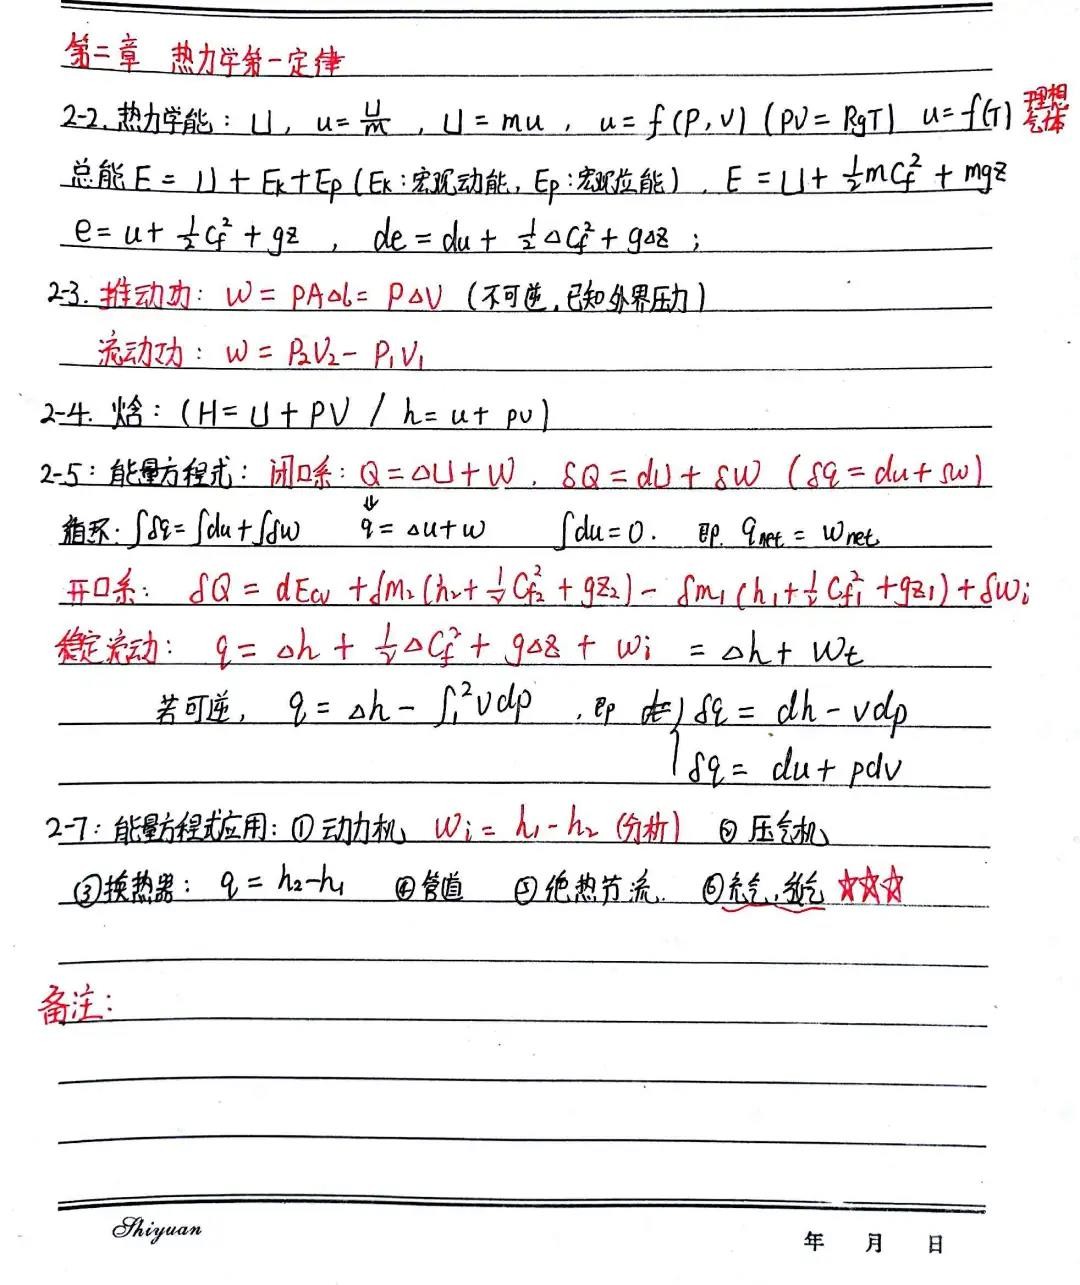 第二章 热力学第一定律
2-2. 热力学能: U, u=U/m, U=mu, u=f(P,V) (PV=RgT) u=f(T) 理想气体
总能 E = U + Ek+Ep (Ek:宏观动能, Ep:宏观位能), E = U+ 1/2 mCf² + mgz
e= u+ 1/2 Cf² + gz , de = du + 1/2 ΔCf² + gΔz ;
2-3. 推动功: W = PAΔl = PΔV (不可逆,已知外界压力)
流动功: W = P₂V₂ - P₁V₁
2-4. 焓: (H=U+PV / h=u+pv)
2-5: 能量方程式: 闭口系: Q=ΔU+W. δQ=dU+δW (δq=du+δw)
⇓
循环: ∫δq=∫du+∫δw q=Δu+w ∫du=0. 即 qnet = wnet
开口系: δQ = dEcv + δm₂(h₂+1/2 Cf₂²+gz₂) - δm₁(h₁+1/2 Cf₁²+gz₁)+δWi
稳定流动: q = Δh + 1/2 ΔCf² + gΔz + wi = Δh+ wt
若可逆, q = Δh - ∫₁²vdp , 即 { δq = dh - vdp
δq = du + pdv
2-7: 能量方程式应用: ① 动力机, wi = h₁-h₂ (分析) ② 压气机
③换热器: q = h₂-h₁ ④管道 ⑤绝热节流. ⑥充气,放气 ☆☆☆
备注:
Shiyuan
年 月 日